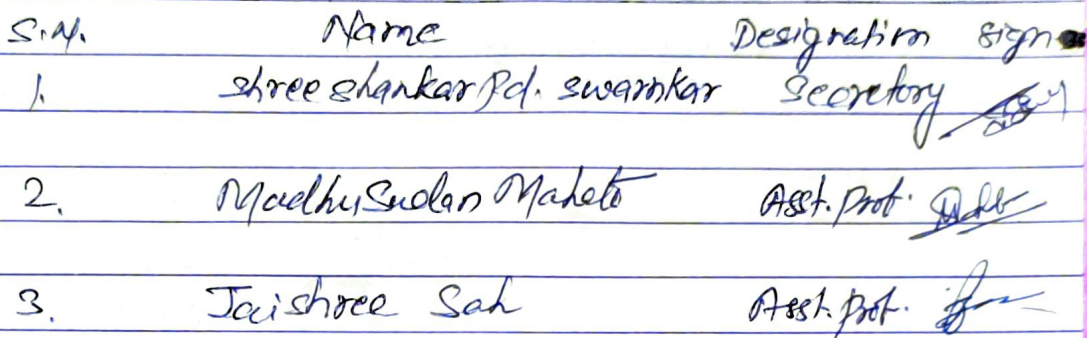 S.N. Name Designation Sign
1. Shree Shankar Pd. Swarnkar Secretory
2. Madhu Sudan Mahato Asst. Prof.
3. Jaishree Sah Asst. Prof.